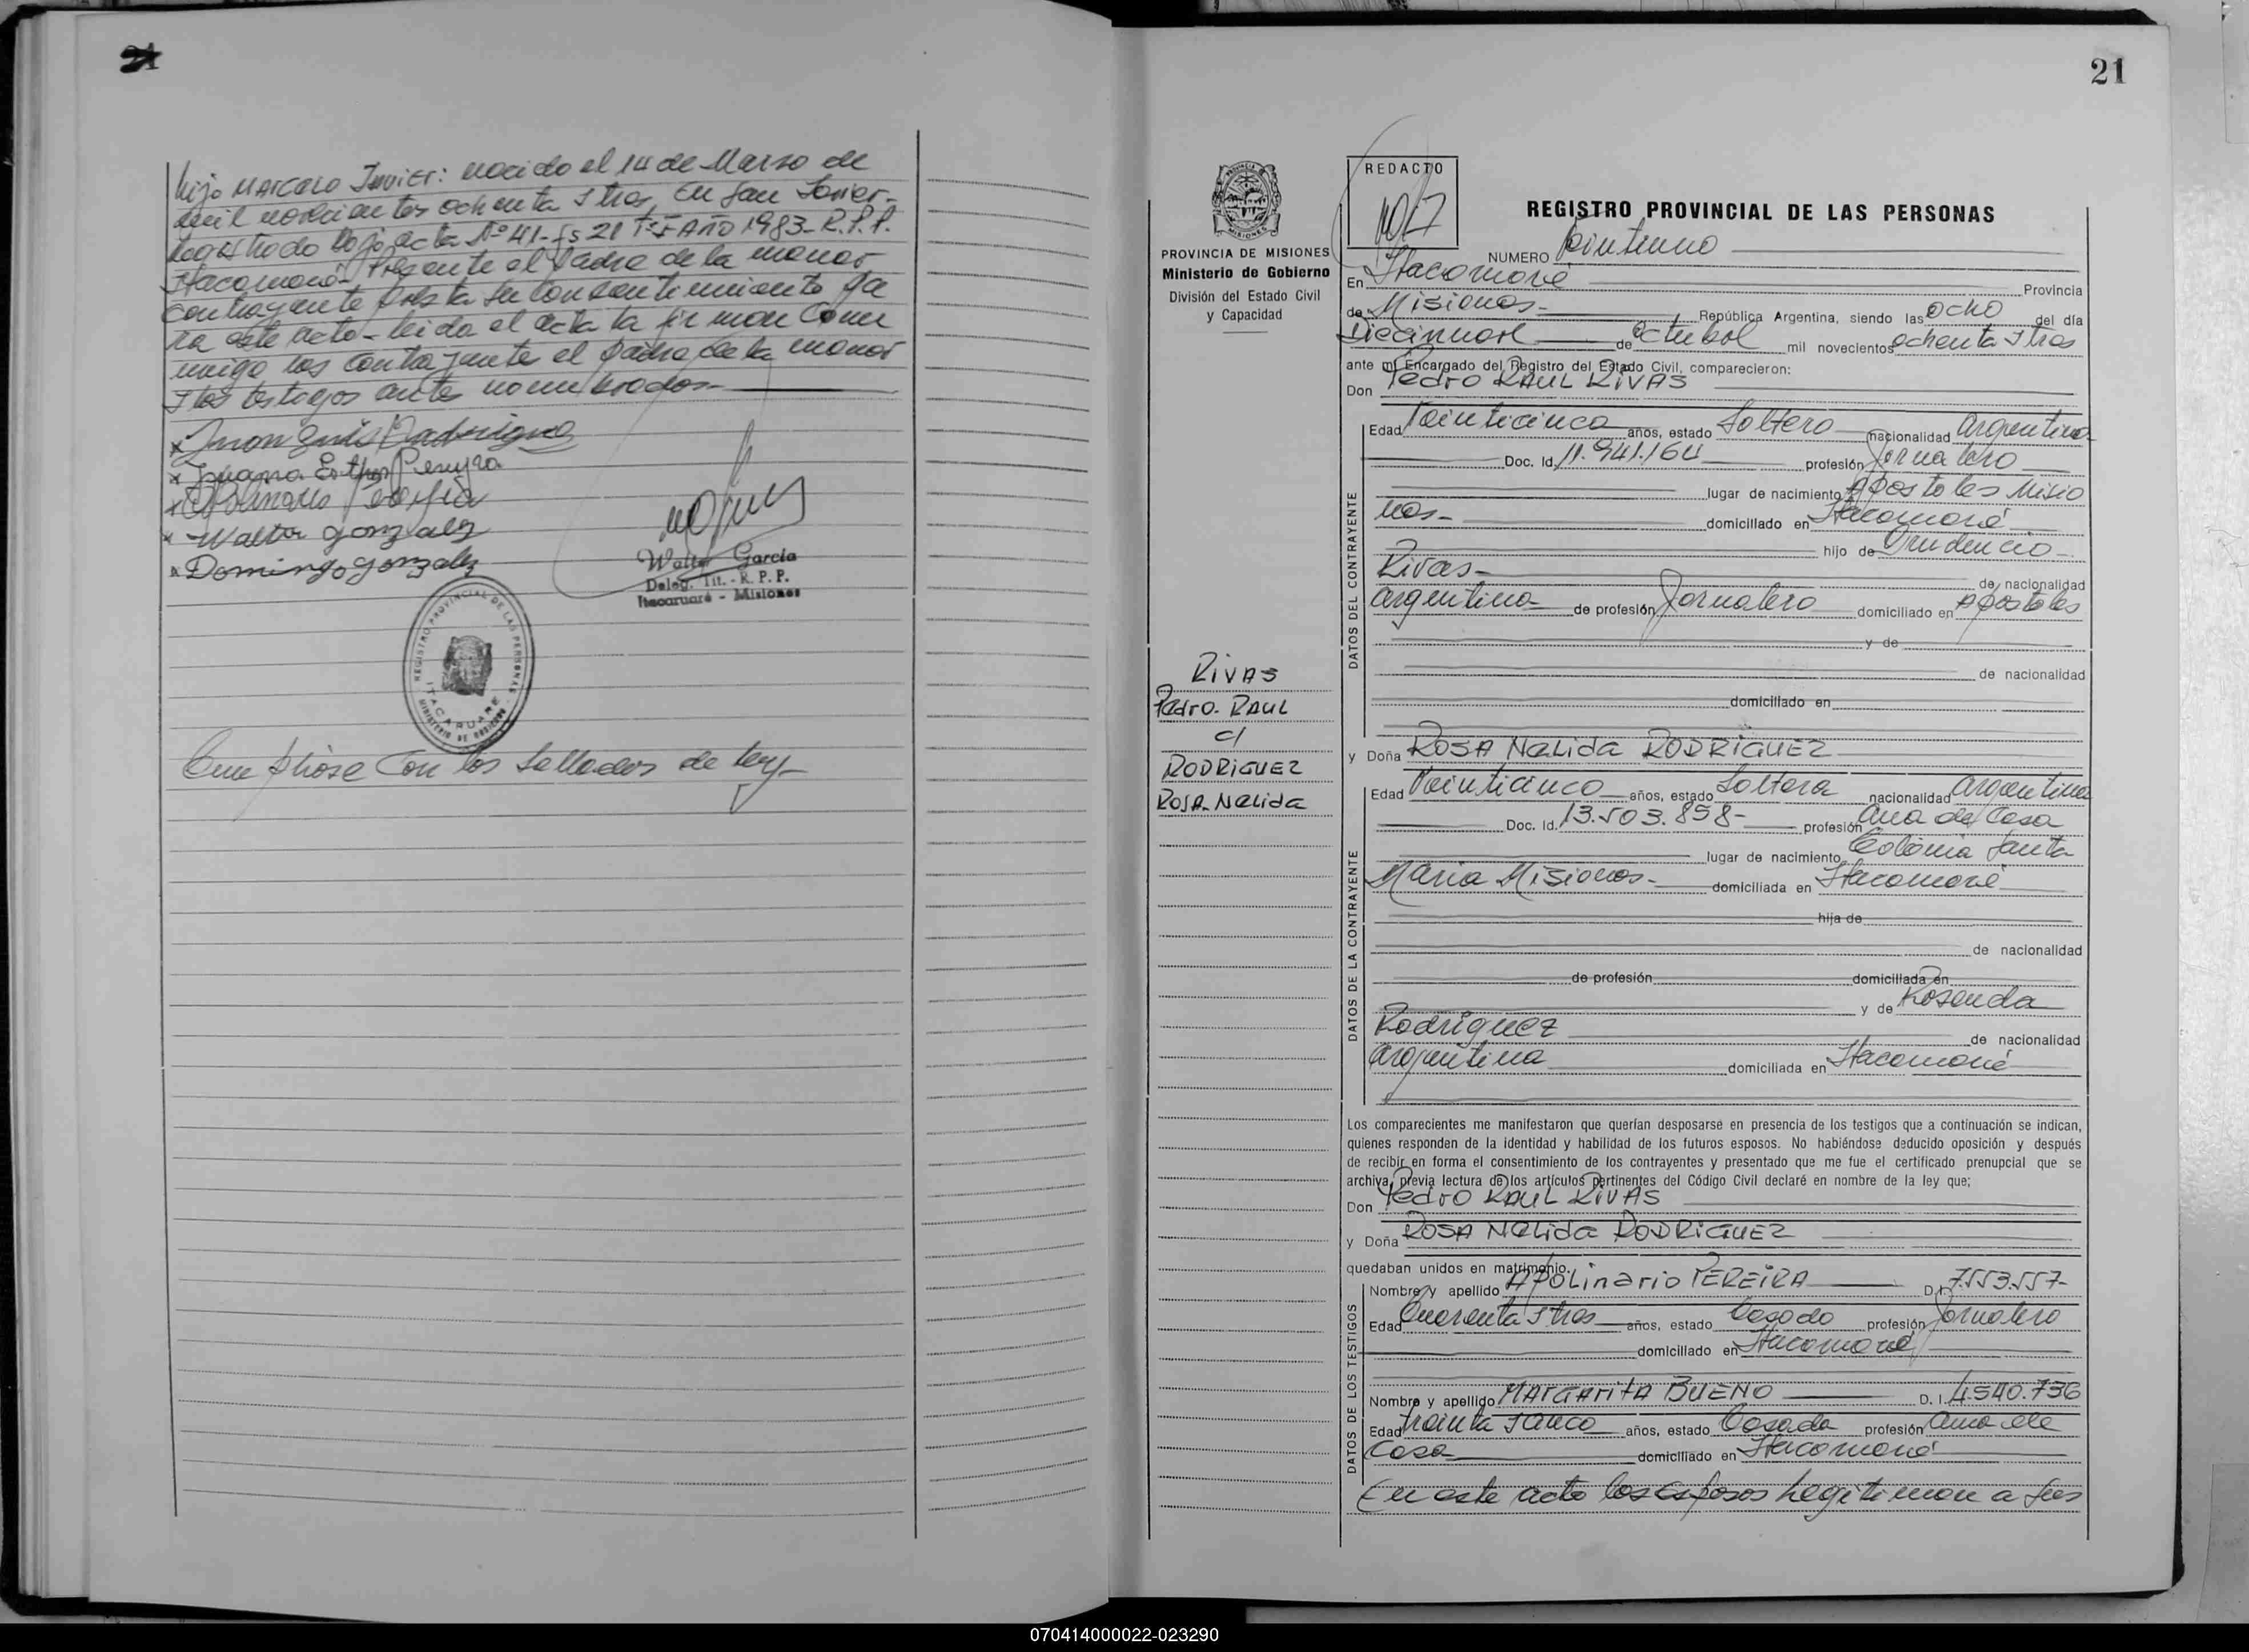 21
hijo MARCELO Javier: nacido el 14 de Marzo de
mil novecientos ochenta y tres, En San Javier-
Registrado Bajo acta Nº 41- fs 21 Tº I AÑO 1983- R.P.P.
Itacaruaré- Presente el padre de la menor
contrayente presta su consentimiento pa
ra este acto- leida el acta la firman Con
migo los contrayente el padre de la menor
y los testigos antes nombrados-
x Juan Luis Rodriguez
x Juana Esther Pereyra
x Apolinario
x Walter gonzalez
x Domingo gonzalez
Walter Garcia
Deleg. Tit. - R. P. P.
Itacaruaré - Misiones
REGISTRO PROVINCIAL DE LAS PERSONAS
ITACARUARE
MINISTERIO DE GOBIERNO
Cumpliose Con los Sellados de ley-
21
PROVINCIA DE MISIONES
Ministerio de Gobierno
División del Estado Civil
y Capacidad
RIVAS
Pedro RAUL
c/
RODRIGUEZ
ROSA Nelida
REDACTO
REGISTRO PROVINCIAL DE LAS PERSONAS
NUMERO Veintiuno
En Itacaruaré Provincia
de Misiones- República Argentina, siendo las ocho del día
Diecinueve de octubre mil novecientos ochenta y tres
ante mí Encargado del Registro del Estado Civil, comparecieron:
Don Pedro RAUL RIVAS
DATOS DEL CONTRAYENTE
Edad Veinticinco años, estado Soltero nacionalidad argentina
Doc. Id. 11.941.164 profesión Jornalero
lugar de nacimiento Apostoles Misio
nes- domiciliado en Itacaruaré
hijo de Prudencio
Rivas- de nacionalidad
argentina de profesión Jornalero domiciliado en Apostoles
y de
de nacionalidad
domiciliado en
y Doña ROSA Nelida RODRIGUEZ
DATOS DE LA CONTRAYENTE
Edad Veinticinco años, estado Soltera nacionalidad argentina
Doc. Id. 13.503.858- profesión Ama de Casa
lugar de nacimiento Colonia Santa
Maria Misiones- domiciliada en Itacaruaré
hija de
de nacionalidad
de profesión domiciliada en
y de Rosenda
Rodriguez de nacionalidad
argentina domiciliada en Itacaruaré
Los comparecientes me manifestaron que querían desposarse en presencia de los testigos que a continuación se indican,
quienes responden de la identidad y habilidad de los futuros esposos. No habiéndose deducido oposición y después
de recibir en forma el consentimiento de los contrayentes y presentado que me fue el certificado prenupcial que se
archiva, previa lectura de los artículos pertinentes del Código Civil declaré en nombre de la ley que;
Don Pedro RAUL RIVAS
y Doña ROSA Nelida RODRIGUEZ
quedaban unidos en matrimonio.
DATOS DE LOS TESTIGOS
Nombre y apellido APOLinario PEREIRA D.I. 7.553.557-
Edad Cuarenta y tres años, estado Casado profesión Jornalero
domiciliado en Itacaruaré
Nombre y apellido MARGARITA BUENO D. I. 4.540.736
Edad treinta y cinco años, estado Casada profesión Ama de
Casa domiciliado en Itacaruaré
En este acto los esposos Legitiman a su
070414000022-023290